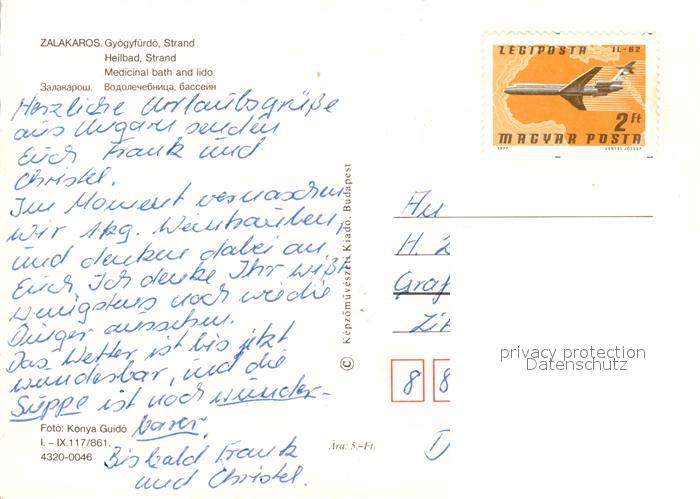 ZALAKAROS. Gyógyfürdő, Strand
Heilbad, Strand
Medicinal bath and lido
Залакарош. Водолечебница, бассейн
Herzliche Urlaubsgrüße
aus Ungarn senden
Euch Frank und
Christel.
Im Moment vernaschen
wir 1kg. Weintrauben,
und denken dabei an
Euch. Ich denke Ihr wißt
wenigstens noch wie die
Dinger aussehen.
Das Wetter ist bis jetzt
wunderbar, und die
Suppe ist noch wunder-
barer.
Bis bald Frank
und Christel.
Fotó: Kónya Guidó
I. – IX.117/861.
4320-0046
Ára: 5,–Ft.
© Képzőművészeti Kiadó, Budapest
LÉGIPOSTA IL-62
2 Ft
MAGYAR POSTA
1977. VERTEL JÓZSEF
An
H.
Graf
Zit
8 8
D
privacy protection
Datenschutz